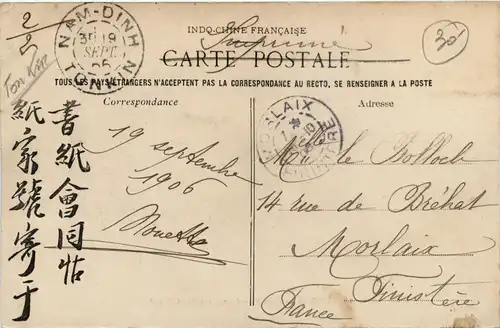 INDO-CHINE FRANÇAISE
Imprimé
CARTE POSTALE
TOUS LES PAYS ÉTRANGERS N'ACCEPTENT PAS LA CORRESPONDANCE AU RECTO, SE RENSEIGNER A LA POSTE
Correspondance
Adresse
NAM-DINH
19
SEPT
TONKIN
Tonkin
30
MORLAIX
FINISTÈRE
19 septembre
1906
書紙會同帖
紙家號寄于
Mlle le Bolloch
14 rue de Bréhat
Morlaix
Finistère
France